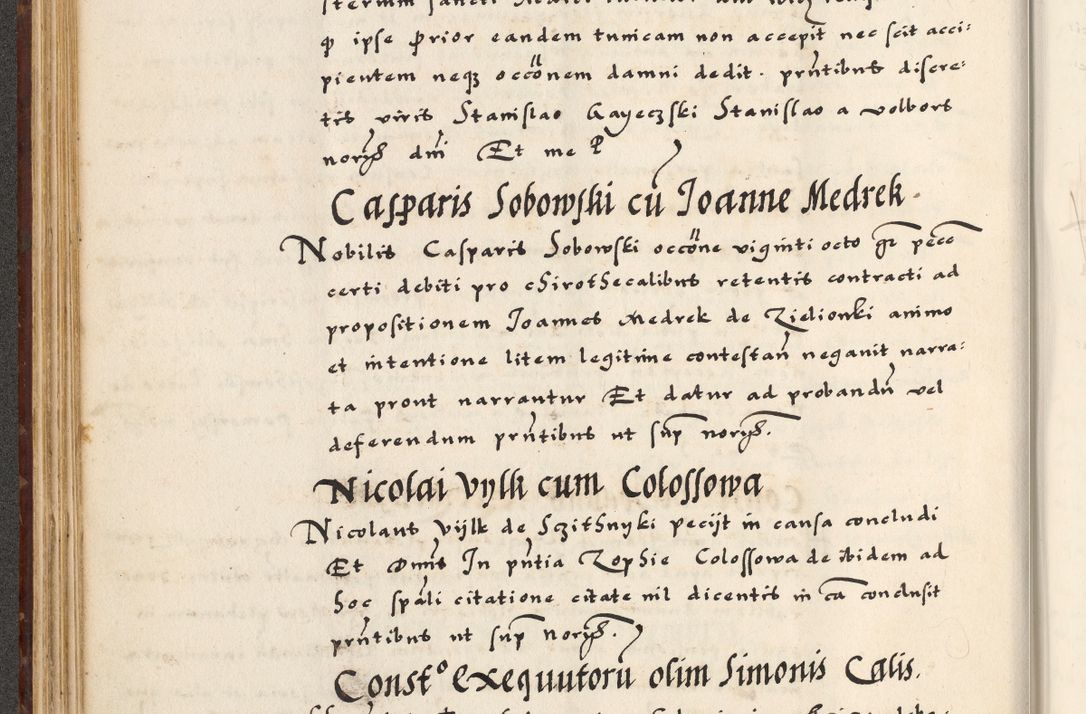 ꝙ ipse Prior eandem tunicam non accepit nec scit acci:
pientem neqꝫ occōnem damni dedit. prñtibus discre:
tis viris Stanislao Gayeczski Stanislao a volbors
norys dni Et me P
Casparis Sobowski cū Joanne Medrek.
Nobilis Casparis Sobowski occōne viginti octo gr pecc
certi debiti pro chirothecalibus retentis contracti ad
propositionem Joannes Medrek de Zielionki animo
et intentione litem legitime contestañ negauit narra:
ta prout narrantur Et datur ad probandũ vel
deferendum prñtibus ut sup norys.
Nicolai vylk cum Colossowa
Nicolaus Vylk de Sczithnyki pecijt in causa concludi
Et Dnus In pñtia Zophie Colossowa de ibidem ad
hoc spāli citatione citate nil dicentis in cā conclusit
prñtibus ut sup norys.
Constº Exequutorū olim Simonis Calis.